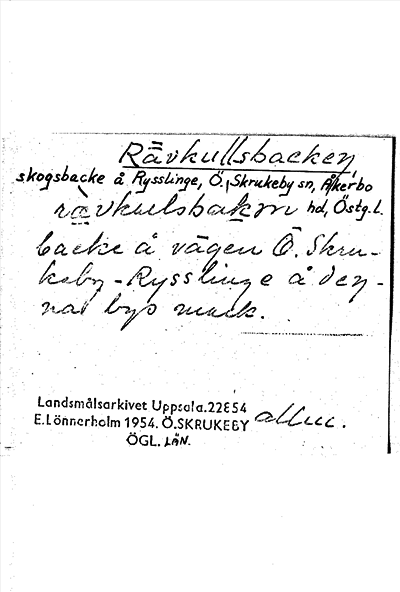 Rävkullsbacken
skogsbacke å Rysslinge, Ö. Skrukeby sn, Åkerbo
rävkulsbakɐn hd, Östg.l.
backe å vägen Ö. Skru-
keby - Rysslinge å den-
nas bys mark.
allm.
Landsmålsarkivet Uppsala.22854
E.Lönnerholm 1954. Ö.SKRUKEBY
ÖGL. LÄN.